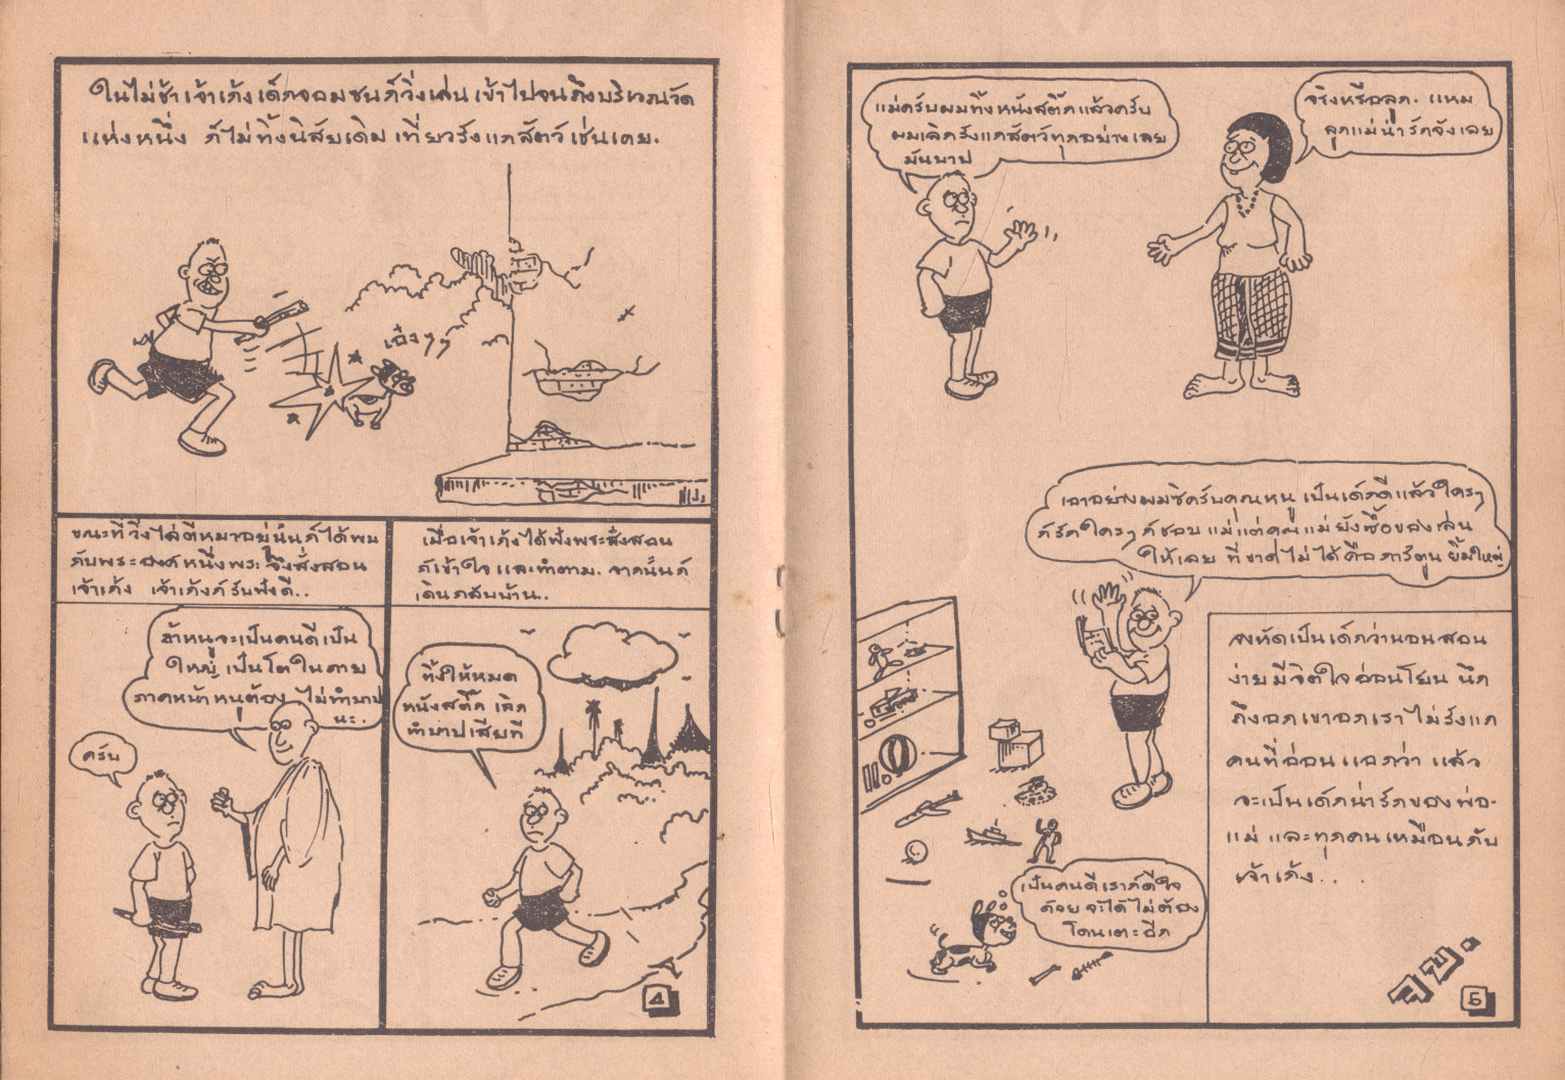 ในไม่ช้าเจ้าเก้งเด็กจอมซนก็วิ่งเล่นเข้าไปจนถึงบริเวณวัด
แห่งหนึ่ง ก็ไม่ทิ้งนิสัยเดิม เที่ยวรังแกสัตว์เช่นเคย.
เอ๋งๆๆ
ขณะที่วิ่งไล่ตีหมาอยู่นั้นก็ได้พบ
กับพระองค์หนึ่งพระจึงสั่งสอน
เจ้าเก้ง เจ้าเก้งก็รับฟังดี..
ถ้าหนูจะเป็นคนดีเป็น
ใหญ่เป็นโตในภาย
ภาคหน้าหนูต้องไม่ทำบาป
นะ.
ครับ
เมื่อเจ้าเก้งได้ฟังพระสั่งสอน
ก็เข้าใจและทำตาม. จากนั้นก็
เดินกลับบ้าน..
ทิ้งให้หมด
หนังสติ๊ก เลิก
ทำบาปเสียที
4
แม่ครับผมทิ้งหนังสติ๊กแล้วครับ
ผมเลิกรังแกสัตว์ทุกอย่างเลย
มันบาป
จริงหรือลูก. แหม
ลูกแม่น่ารักจังเลย
เอาอย่างผมซิครับคุณหนู เป็นเด็กดีแล้วใครๆ
ก็รักใครๆ ก็ชอบ แม่แต่คุณแม่ยังซื้อของเล่น
ให้เลย ที่ขาดไม่ได้คือการ์ตูน ยิ้มใหญ่
จงหัดเป็นเด็กว่านอนสอน
ง่ายมีจิตใจอ่อนโยน นึก
ถึงอกเขาอกเราไม่รังแก
คนที่อ่อนแอกว่า แล้ว
จะเป็นเด็กน่ารักของพ่อ-
แม่ และทุกคนเหมือนกับ
เจ้าเก้ง...
เป็นคนดีเราก็ดีใจ
ด้วย จะได้ไม่ต้อง
โดนเตะอีก
จบ.
5